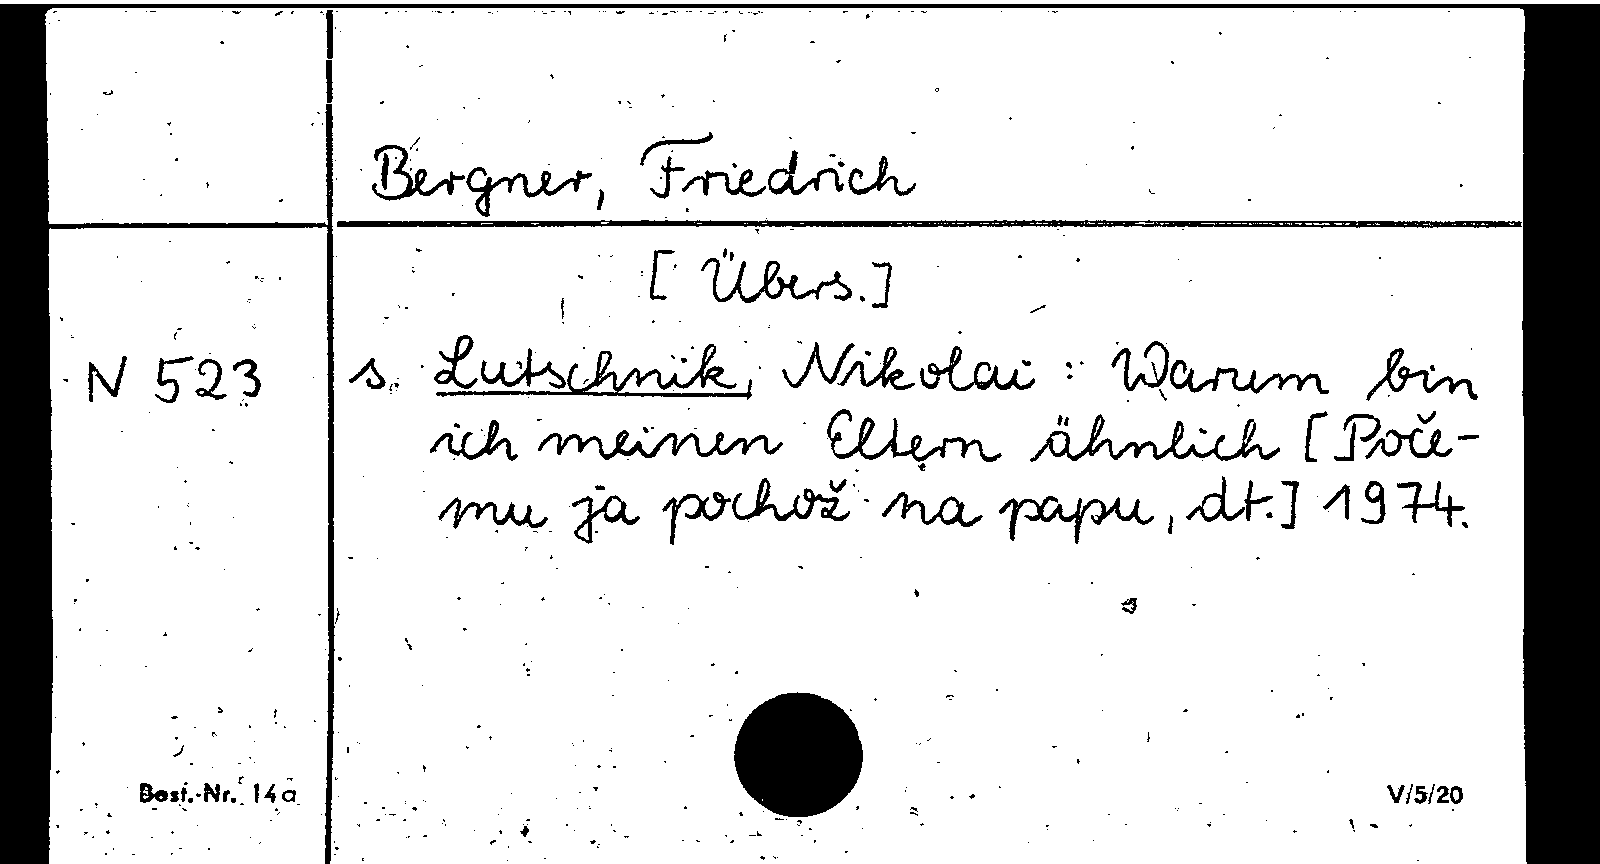 Bergner, Friedrich
[Übers.]
N 523 s. Lutschnik, Nikolai: Warum bin
ich meinen Eltern ähnlich [Poče-
mu ja pochož na papu, dt.] 1974.
Best.-Nr. 14a V/5/20